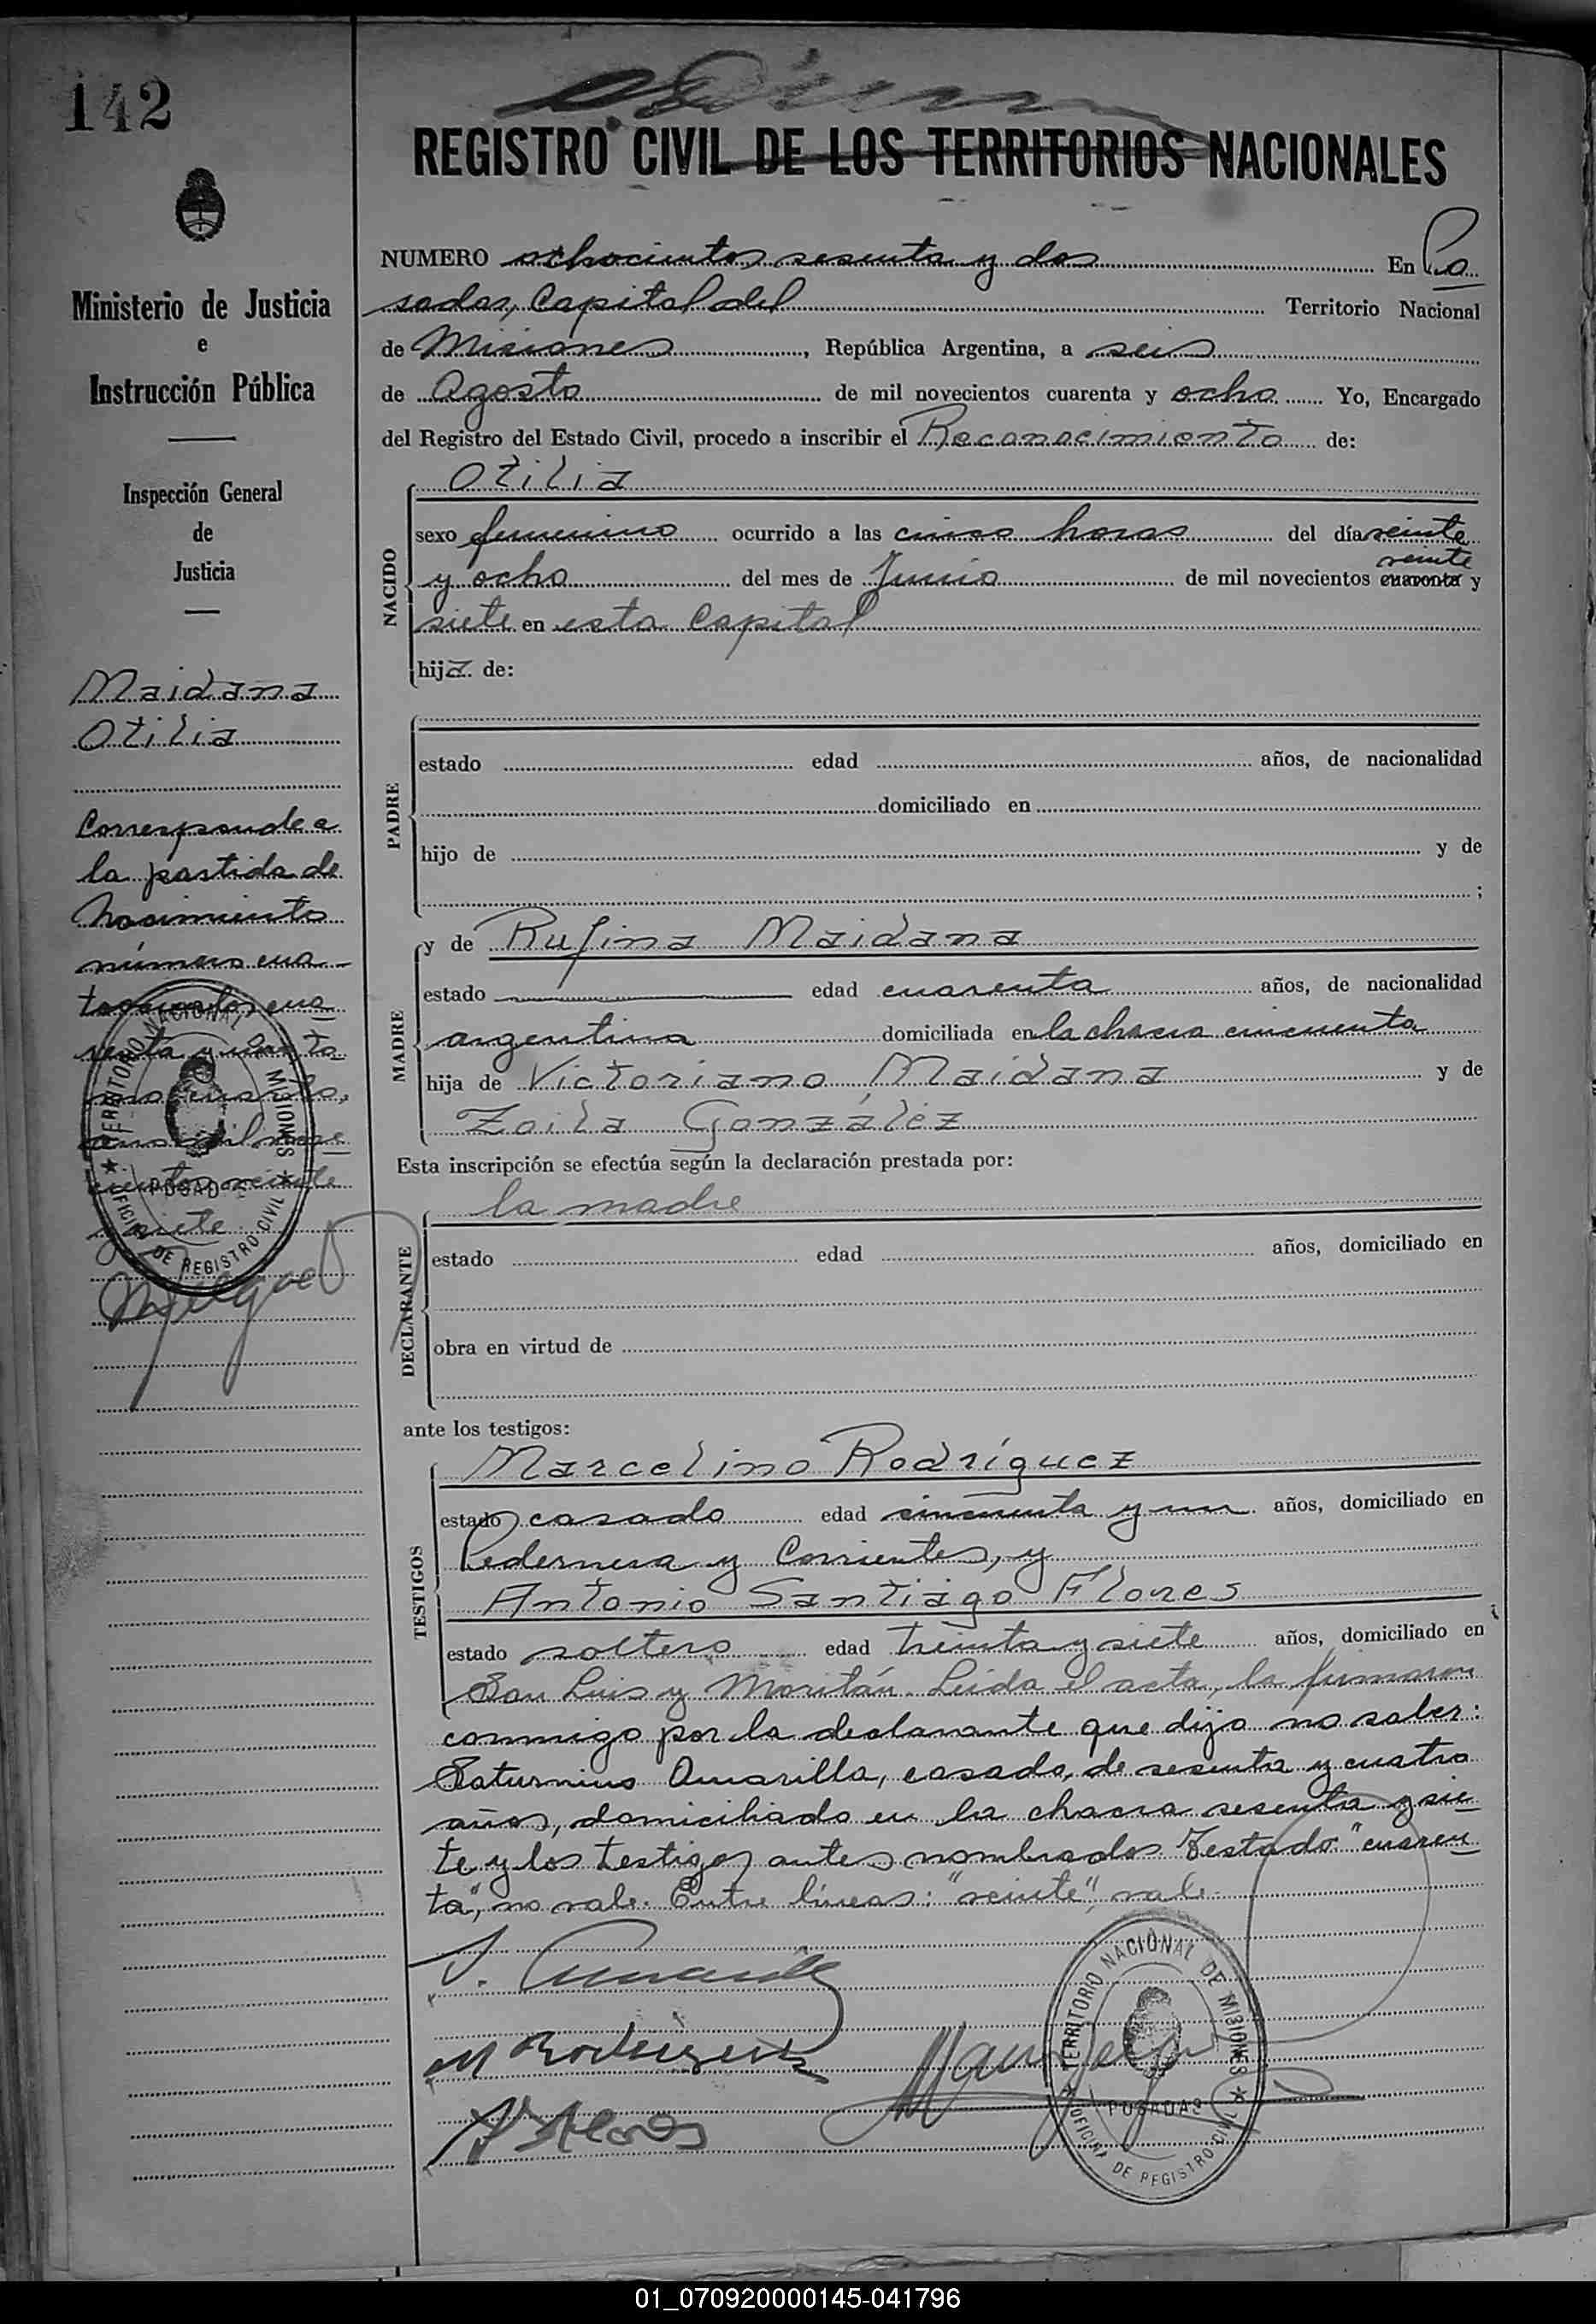 142
REGISTRO CIVIL DE LOS TERRITORIOS NACIONALES
Ministerio de Justicia
e
Instrucción Pública
Inspección General
de
Justicia
Maidana
Otilia
Corresponde a
la partida de
nacimiento
número cua-
renta y
y siete
NUMERO ochocientos sesenta y dos En Po
sadas, Capital del Territorio Nacional
de Misiones, República Argentina, a seis
de Agosto de mil novecientos cuarenta y ocho Yo, Encargado
del Registro del Estado Civil, procedo a inscribir el Reconocimiento de:
NACIDO
Otilia
sexo femenino ocurrido a las cinco horas del día veinte
veinte
y ocho del mes de Junio de mil novecientos cuarenta y
siete en esta Capital
hija de:
PADRE
estado edad años, de nacionalidad
domiciliado en
hijo de y de
;
MADRE
y de Rufina Maidana
estado edad cuarenta años, de nacionalidad
argentina domiciliada en la chacra cincuenta
hija de Victoriano Maidana y de
Zoila González
Esta inscripción se efectúa según la declaración prestada por:
DECLARANTE
la madre
estado edad años, domiciliado en
obra en virtud de
ante los testigos:
TESTIGOS
Marcelino Rodríguez
estado casado edad cincuenta y un años, domiciliado en
Pedernera y Corrientes, y
Antonio Santiago Flores
estado soltero edad treinta y siete años, domiciliado en
San Luis y Moritán. Leída el acta, la firmaron
conmigo por la declarante que dijo no saber:
Saturnino Amarilla, casado, de sesenta y cuatro
años, domiciliado en la chacra sesenta y sie
te y los testigos antes nombrados Testado: "cuaren
ta", no vale. Entre líneas: "veinte", vale.
M Rodriguez
A S Flores
TERRITORIO NACIONAL DE MISIONES
POSADAS
OFICINA DE REGISTRO CIVIL
TERRITORIO NACIONAL MISIONES
POSADAS
OFICINA DE REGISTRO CIVIL
01_070920000145-041796